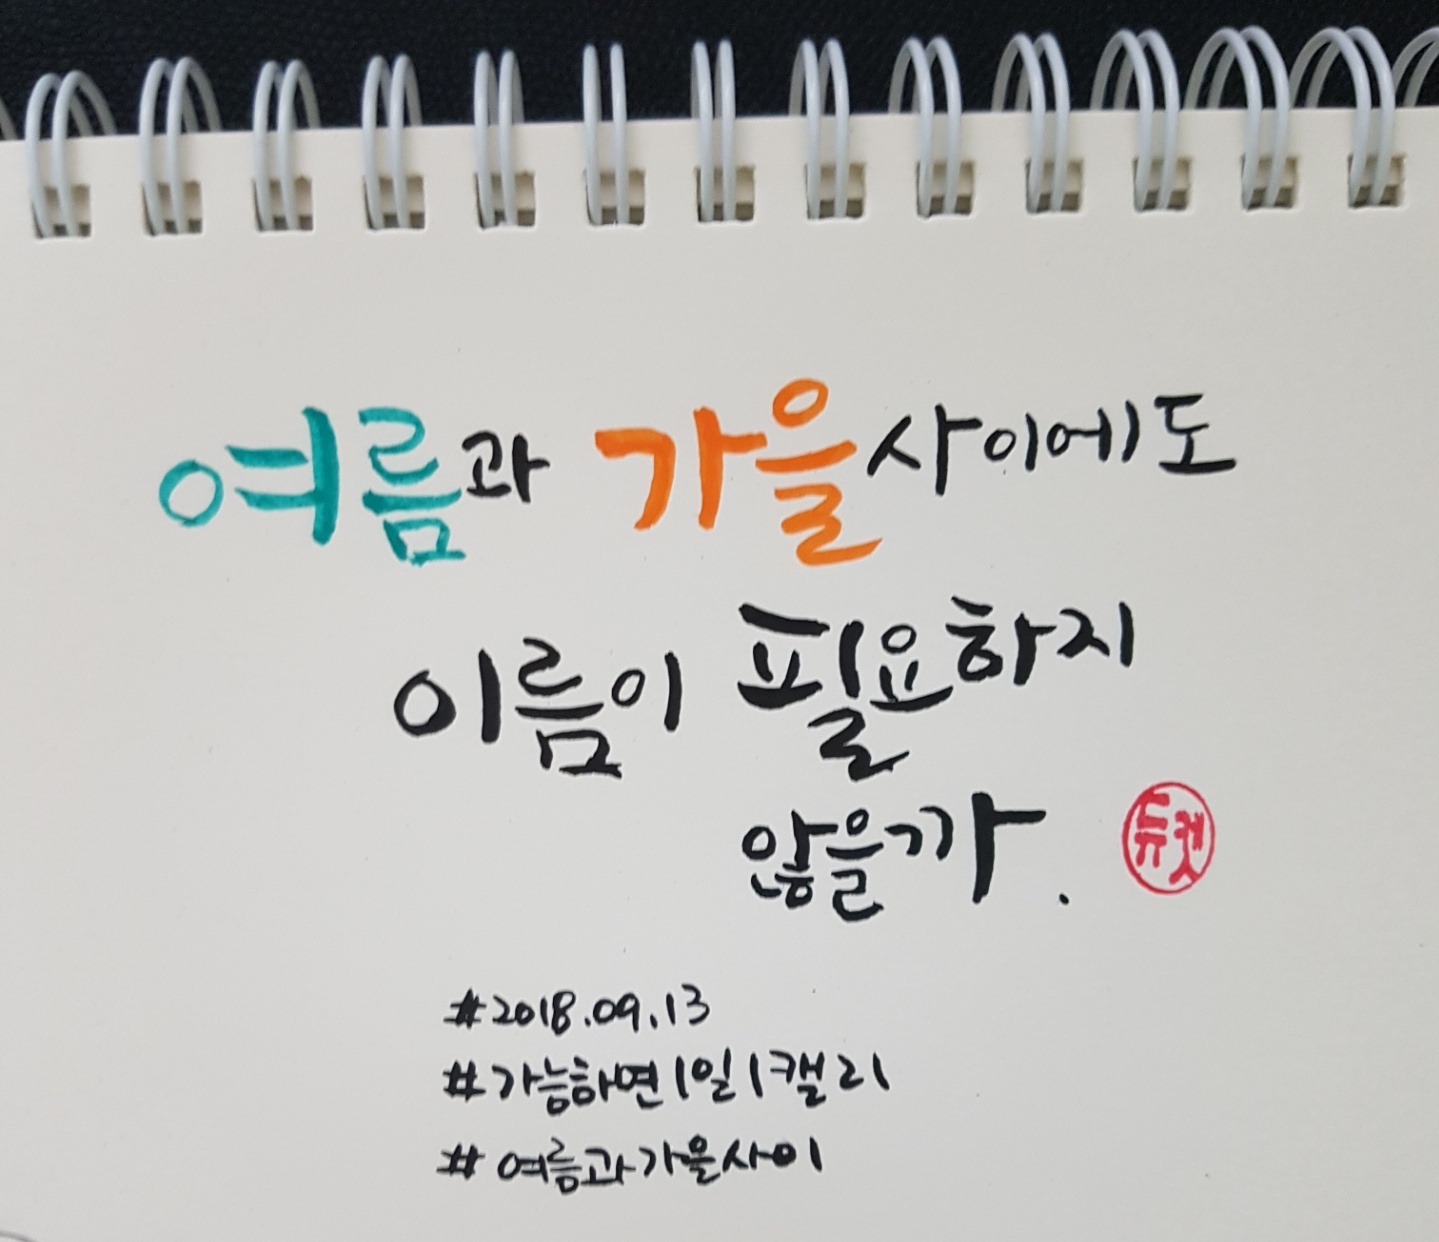 여름과 가을사이에도
이름이 필요하지
않을까.
듀켓
#2018.09.13
#가능하면1일1캘리
#여름과가을사이